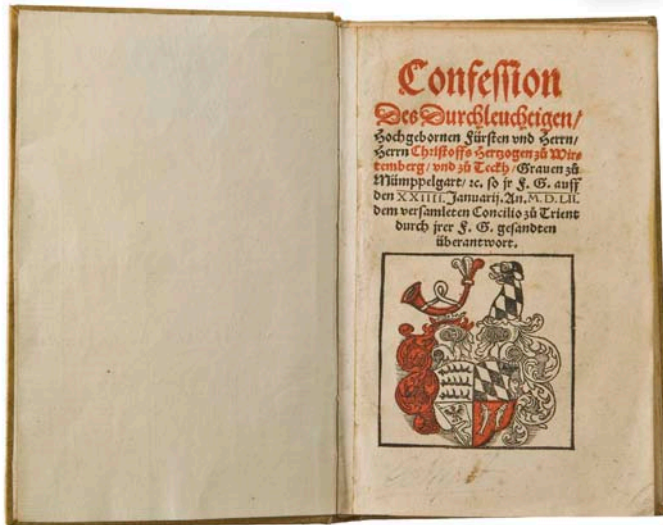 Confession
Des Durchleucheigen/
Hochgebornen Fürsten vnd Herrn/
Herrn Christoffs Hertzogen zů Wir-
temberg/ vnd zů Teckh/ Grauen zů
Mümppelgart/ ꝛc. so jr F. G. auff
den XXIIII. Januarij. An. M. D. LII.
dem versamleten Concilio zů Trient
durch jrer F. G. gesandten
überantwort.